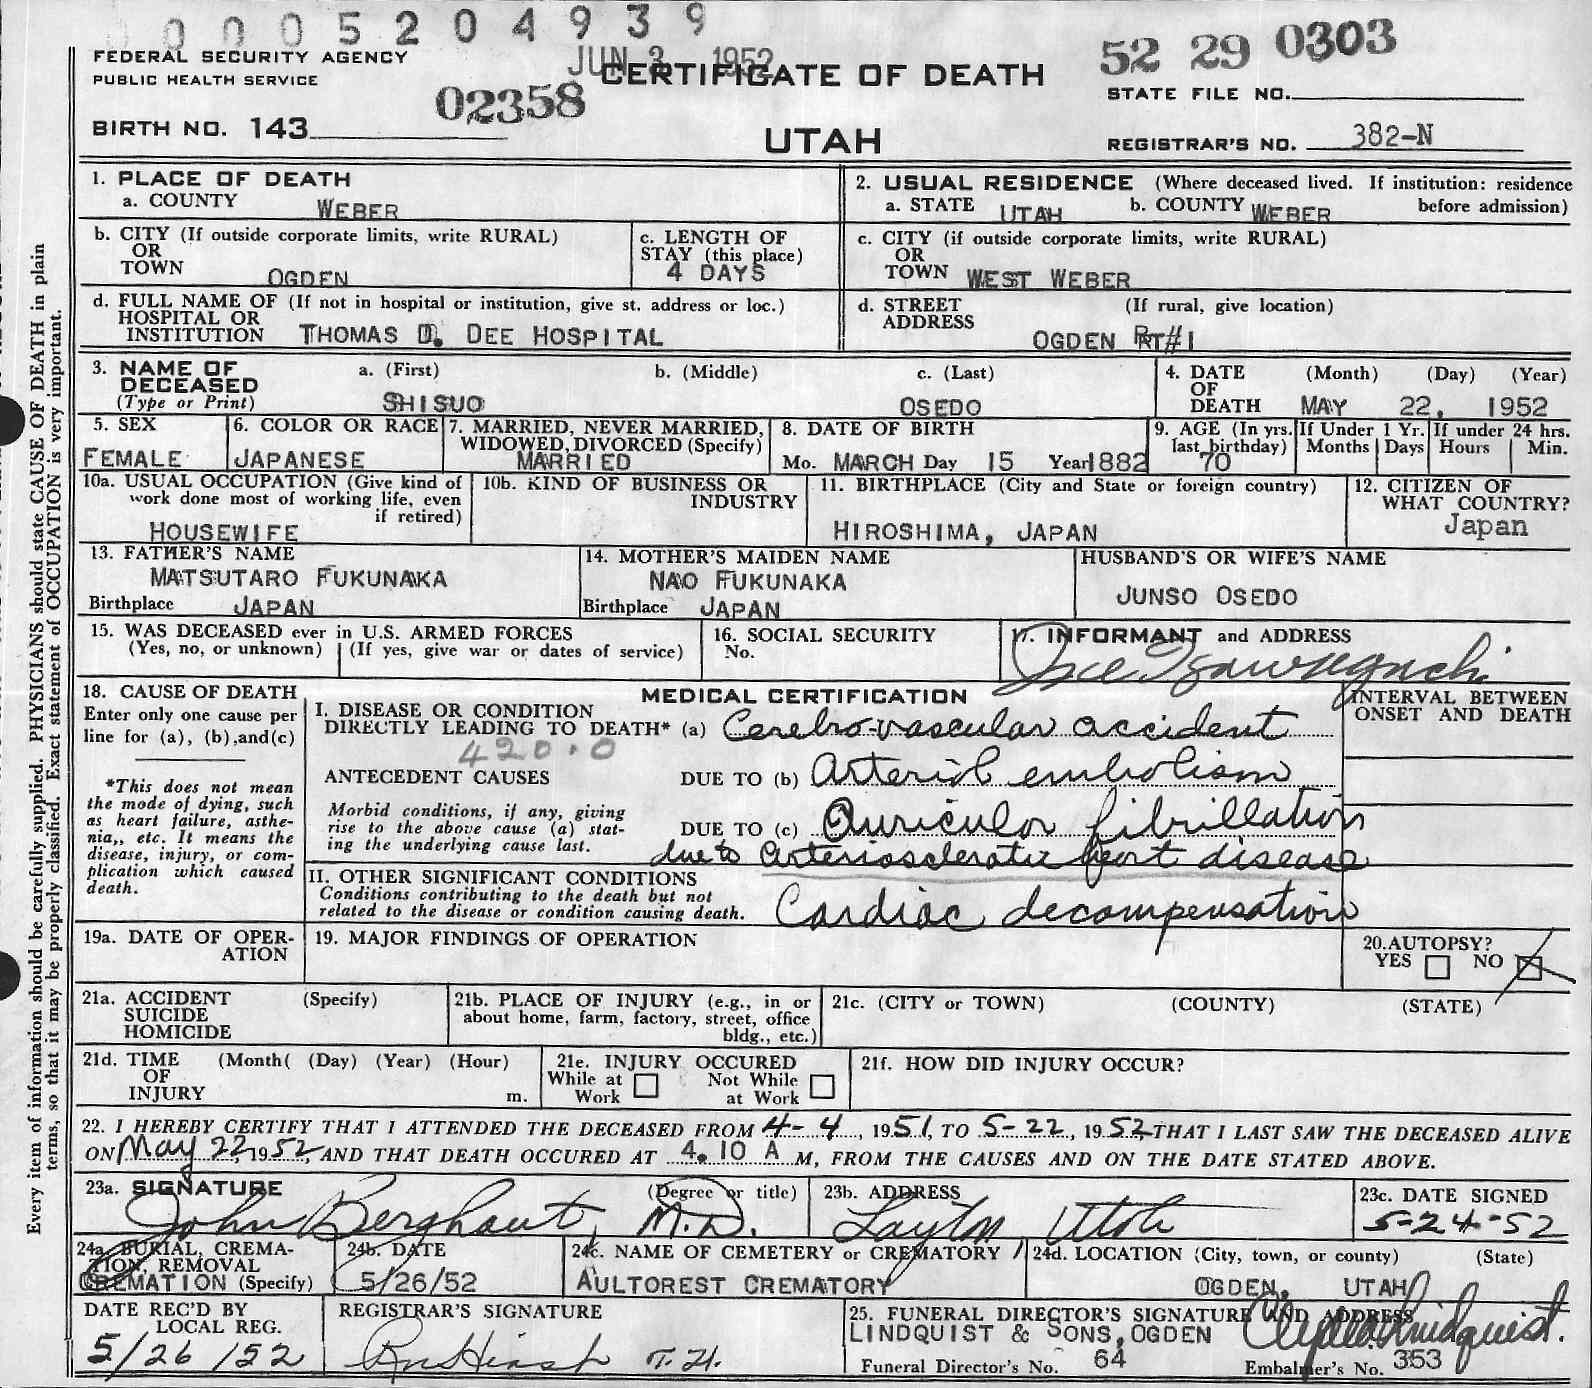 0005204939
FEDERAL SECURITY AGENCY
PUBLIC HEALTH SERVICE
JUN 3 1952
CERTIFICATE OF DEATH
52 29 0303
STATE FILE NO.
02358
BIRTH NO. 143
UTAH
REGISTRAR'S NO. 382-N
Every item of information should be carefully supplied. PHYSICIANS should state CAUSE OF DEATH in plain
terms, so that it may be properly classified. Exact statement of OCCUPATION is very important.
1. PLACE OF DEATH
a. COUNTY WEBER
2. USUAL RESIDENCE (Where deceased lived. If institution: residence
before admission)
a. STATE UTAH b. COUNTY WEBER
b. CITY (If outside corporate limits, write RURAL)
OR
TOWN OGDEN
c. LENGTH OF
STAY (this place)
4 DAYS
c. CITY (if outside corporate limits, write RURAL)
OR
TOWN WEST WEBER
d. FULL NAME OF (If not in hospital or institution, give st. address or loc.)
HOSPITAL OR
INSTITUTION THOMAS D. DEE HOSPITAL
d. STREET (If rural, give location)
ADDRESS
OGDEN RT#1
3. NAME OF
DECEASED
(Type or Print)
a. (First) b. (Middle) c. (Last)
SHISUO OSEDO
4. DATE (Month) (Day) (Year)
OF
DEATH MAY 22, 1952
5. SEX
FEMALE
6. COLOR OR RACE
JAPANESE
7. MARRIED, NEVER MARRIED,
WIDOWED, DIVORCED (Specify)
MARRIED
8. DATE OF BIRTH
Mo. MARCH Day 15 Year 1882
9. AGE (In yrs.
last birthday)
70
If Under 1 Yr.
Months Days
If under 24 hrs.
Hours Min.
10a. USUAL OCCUPATION (Give kind of
work done most of working life, even
if retired)
HOUSEWIFE
10b. KIND OF BUSINESS OR
INDUSTRY
11. BIRTHPLACE (City and State or foreign country)
HIROSHIMA, JAPAN
12. CITIZEN OF
WHAT COUNTRY?
Japan
13. FATHER'S NAME
MATSUTARO FUKUNAKA
Birthplace JAPAN
14. MOTHER'S MAIDEN NAME
NAO FUKUNAKA
Birthplace JAPAN
HUSBAND'S OR WIFE'S NAME
JUNSO OSEDO
15. WAS DECEASED ever in U.S. ARMED FORCES
(Yes, no, or unknown) (If yes, give war or dates of service)
16. SOCIAL SECURITY
No.
17. INFORMANT and ADDRESS
18. CAUSE OF DEATH
Enter only one cause per
line for (a), (b), and (c)
*This does not mean
the mode of dying, such
as heart failure, asthe-
nia,, etc. It means the
disease, injury, or com-
plication which caused
death.
MEDICAL CERTIFICATION
INTERVAL BETWEEN
ONSET AND DEATH
I. DISEASE OR CONDITION
DIRECTLY LEADING TO DEATH* (a) Cerebro-vascular accident
420.0
ANTECEDENT CAUSES DUE TO (b) Arterial embolism
Morbid conditions, if any, giving
rise to the above cause (a) stat-
ing the underlying cause last.
DUE TO (c) Auricular fibrillation
due to Arteriosclerotic heart disease
II. OTHER SIGNIFICANT CONDITIONS
Conditions contributing to the death but not
related to the disease or condition causing death.
Cardiac decompensation
19a. DATE OF OPER-
ATION
19. MAJOR FINDINGS OF OPERATION
20. AUTOPSY?
YES NO
21a. ACCIDENT (Specify)
SUICIDE
HOMICIDE
21b. PLACE OF INJURY (e.g., in or
about home, farm, factory, street, office
bldg., etc.)
21c. (CITY or TOWN) (COUNTY) (STATE)
21d. TIME (Month( (Day) (Year) (Hour)
OF
INJURY m.
21e. INJURY OCCURED
While at
Work
Not While
at Work
21f. HOW DID INJURY OCCUR?
22. I HEREBY CERTIFY THAT I ATTENDED THE DECEASED FROM 4-4, 1951, TO 5-22, 1952, THAT I LAST SAW THE DECEASED ALIVE
ON May 22, 1952, AND THAT DEATH OCCURED AT 4.10 A M, FROM THE CAUSES AND ON THE DATE STATED ABOVE.
23a. SIGNATURE (Degree or title)
John Berghout, M.D.
23b. ADDRESS
Layton, Utah
23c. DATE SIGNED
5-24-52
24a. BURIAL, CREMA-
TION, REMOVAL
CREMATION (Specify)
24b. DATE
5/26/52
24c. NAME OF CEMETERY or CREMATORY
AULTOREST CREMATORY
24d. LOCATION (City, town, or county) (State)
OGDEN, UTAH
DATE REC'D BY
LOCAL REG.
5/26/52
REGISTRAR'S SIGNATURE
25. FUNERAL DIRECTOR'S SIGNATURE AND ADDRESS
LINDQUIST & SONS, OGDEN
Lindquist.
Funeral Director's No. 64
Embalmer's No. 353